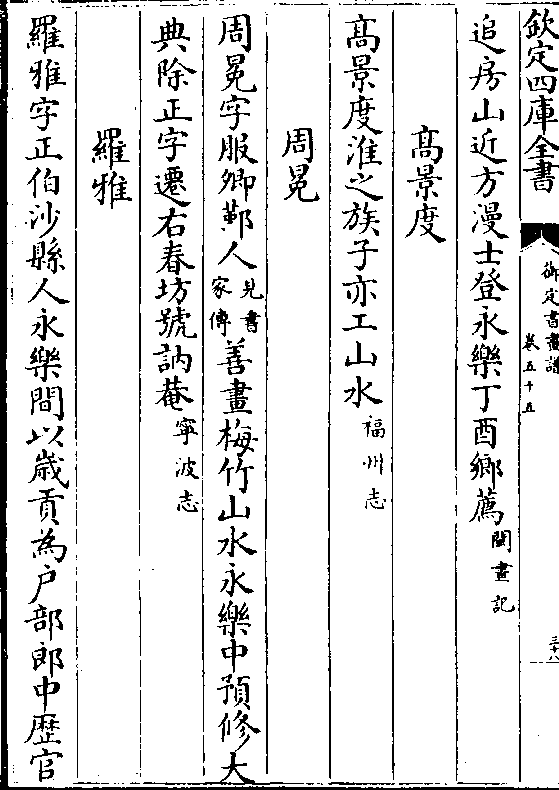 欽定四庫全書
御定書畫譜
卷五十五
三十八
追房山近方漫士登永樂丁酉鄉薦閩畫記
髙景度
髙景度淮之族子亦工山水福州志
周冕
周冕字服卿鄞人見書家傳善畫梅竹山水永樂中預修大
典除正字遷右春坊號訥菴寧波志
羅雅
羅雅字正伯沙縣人永樂間以歲貢為户部郎中歴官